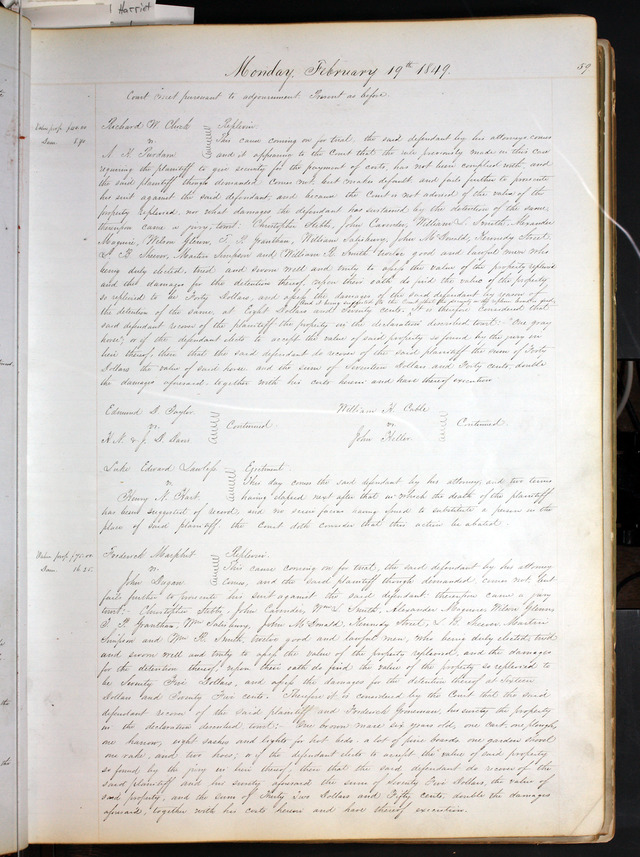 Harriet
Monday, February 19th 1849.
59
Court met pursuant to adjournment. Present as before.
Value prop. $40.00
Dam. 8.70
Richard W. Clark
vs.
A. H.
Replevin.
This cause coming on for trial, the said defendant by his attorney comes
and it appearing to the Court that the rule previously made in this cause
requiring the plaintiff to give security for the payment of costs, has not been complied with, and
the said plaintiff though demanded comes not, but makes default and fails further to prosecute
his suit against the said defendant, and because the Court is not advised of the value of the
property replevied, nor what damages the defendant has sustained by the detention of the same,
thereupon came a jury, towit: Christopher Stebbs, John Cavender, William S. Smith, Alexander
Maguire, Wilson Glenn, T. P. Grantham, William Salisbury, John McDonald, Kennedy Street,
L. B. Martin Simpson and William R. Smith twelve good and lawful men who
being duly elected, tried and sworn well and truly to assess the value of the property replevied
and the damages for the detention thereof, upon their oath do find the value of the property
so replevied to be Forty Dollars, and assess the damages of the said defendant by reason of
the detention of the same, at Eight Dollars and Seventy cents. It is therefore Considered that
said defendant recover of the plaintiff the property in the declaration described towit: "One gray
horse," or if the defendant elects to accept the value of said property so found by the jury in
lieu thereof, then that the said defendant do recover of the said plaintiff the sum of Forty
Dollars the value of said horse and the sum of Seventeen Dollars and Forty cents, double
the damages aforesaid together with his costs herein and have thereof execution
Edmund D. Taylor
vs.
N. A. & J. D.
Continued.
William H. Cable
vs.
John
Continued.
Luke Edward Lawless
vs.
Henry N. Hart.
Ejectment.
This day comes the said defendant by his attorney, and two terms
having elapsed next after that in which the death of the plaintiff
has been suggested of record, and no scire facias having issued to substitute a person in the
place of said plaintiff, the Court doth consider that this action be abated.
Value prop. $75.00
Dam. 16.25.
Frederick
vs.
John Dugan.
Replevin.
This cause coming on for trial, the said defendant by his attorney
comes, and the said plaintiff though demanded, comes not, but
fails further to prosecute his suit against the said defendant thereupon came a jury
towit: Christopher Stebbs, John Cavender, Wm S. Smith, Alexander Maguire, Wilson Glenn,
T. P. Grantham, Wm Salisbury, John McDonald, Kennedy Street, L. B. Martin
Simpson and Wm R. Smith, twelve good and lawful men, who being duly elected, tried
and sworn well and truly to assess the value of the property replevied, and the damages
for the detention thereof, upon their oath do find the value of the property so replevied to
be Seventy Five Dollars, and assess the damages for the detention thereof at Sixteen
Dollars and Twenty Five cents. Therefore it is considered by the Court that the said
defendant recover of the said plaintiff and Frederick his surety the property
in the declaration described, towit: One brown mare six years old, one cart, one plough,
one harrow, eight sashes and lights for hot beds, a lot of pine boards, one garden shovel
one rake, and two hoes; or if the defendant elects to accept the value of said property
so found by the jury in lieu thereof, then that the said defendant do recover of the
said plaintiff and his surety aforesaid the sum of Seventy Five Dollars, the value of
said property, and the sum of Thirty Two Dollars and Fifty cents, double the damages
aforesaid, together with his costs herein and have thereof execution.